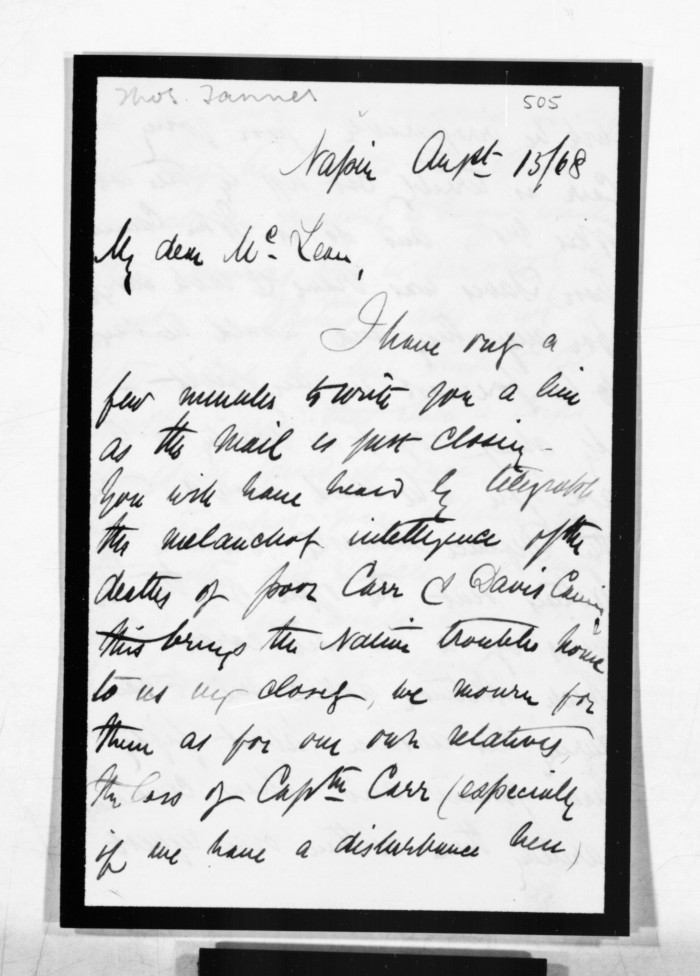 Thos. Tanner
505
Napier Augst 13/68
My dear Mc. Lean,
I have only a
few minutes to write you a line
as the Mail is just closing -
You will have heard by telegraph
the melancholy intelligence of the
deaths of poor Carr & Davis Canning
this brings the Native troubles home
to us very closely, we mourn for
them as for our own relatives,
the loss of Captn Carr (especially
if we have a disturbance here)